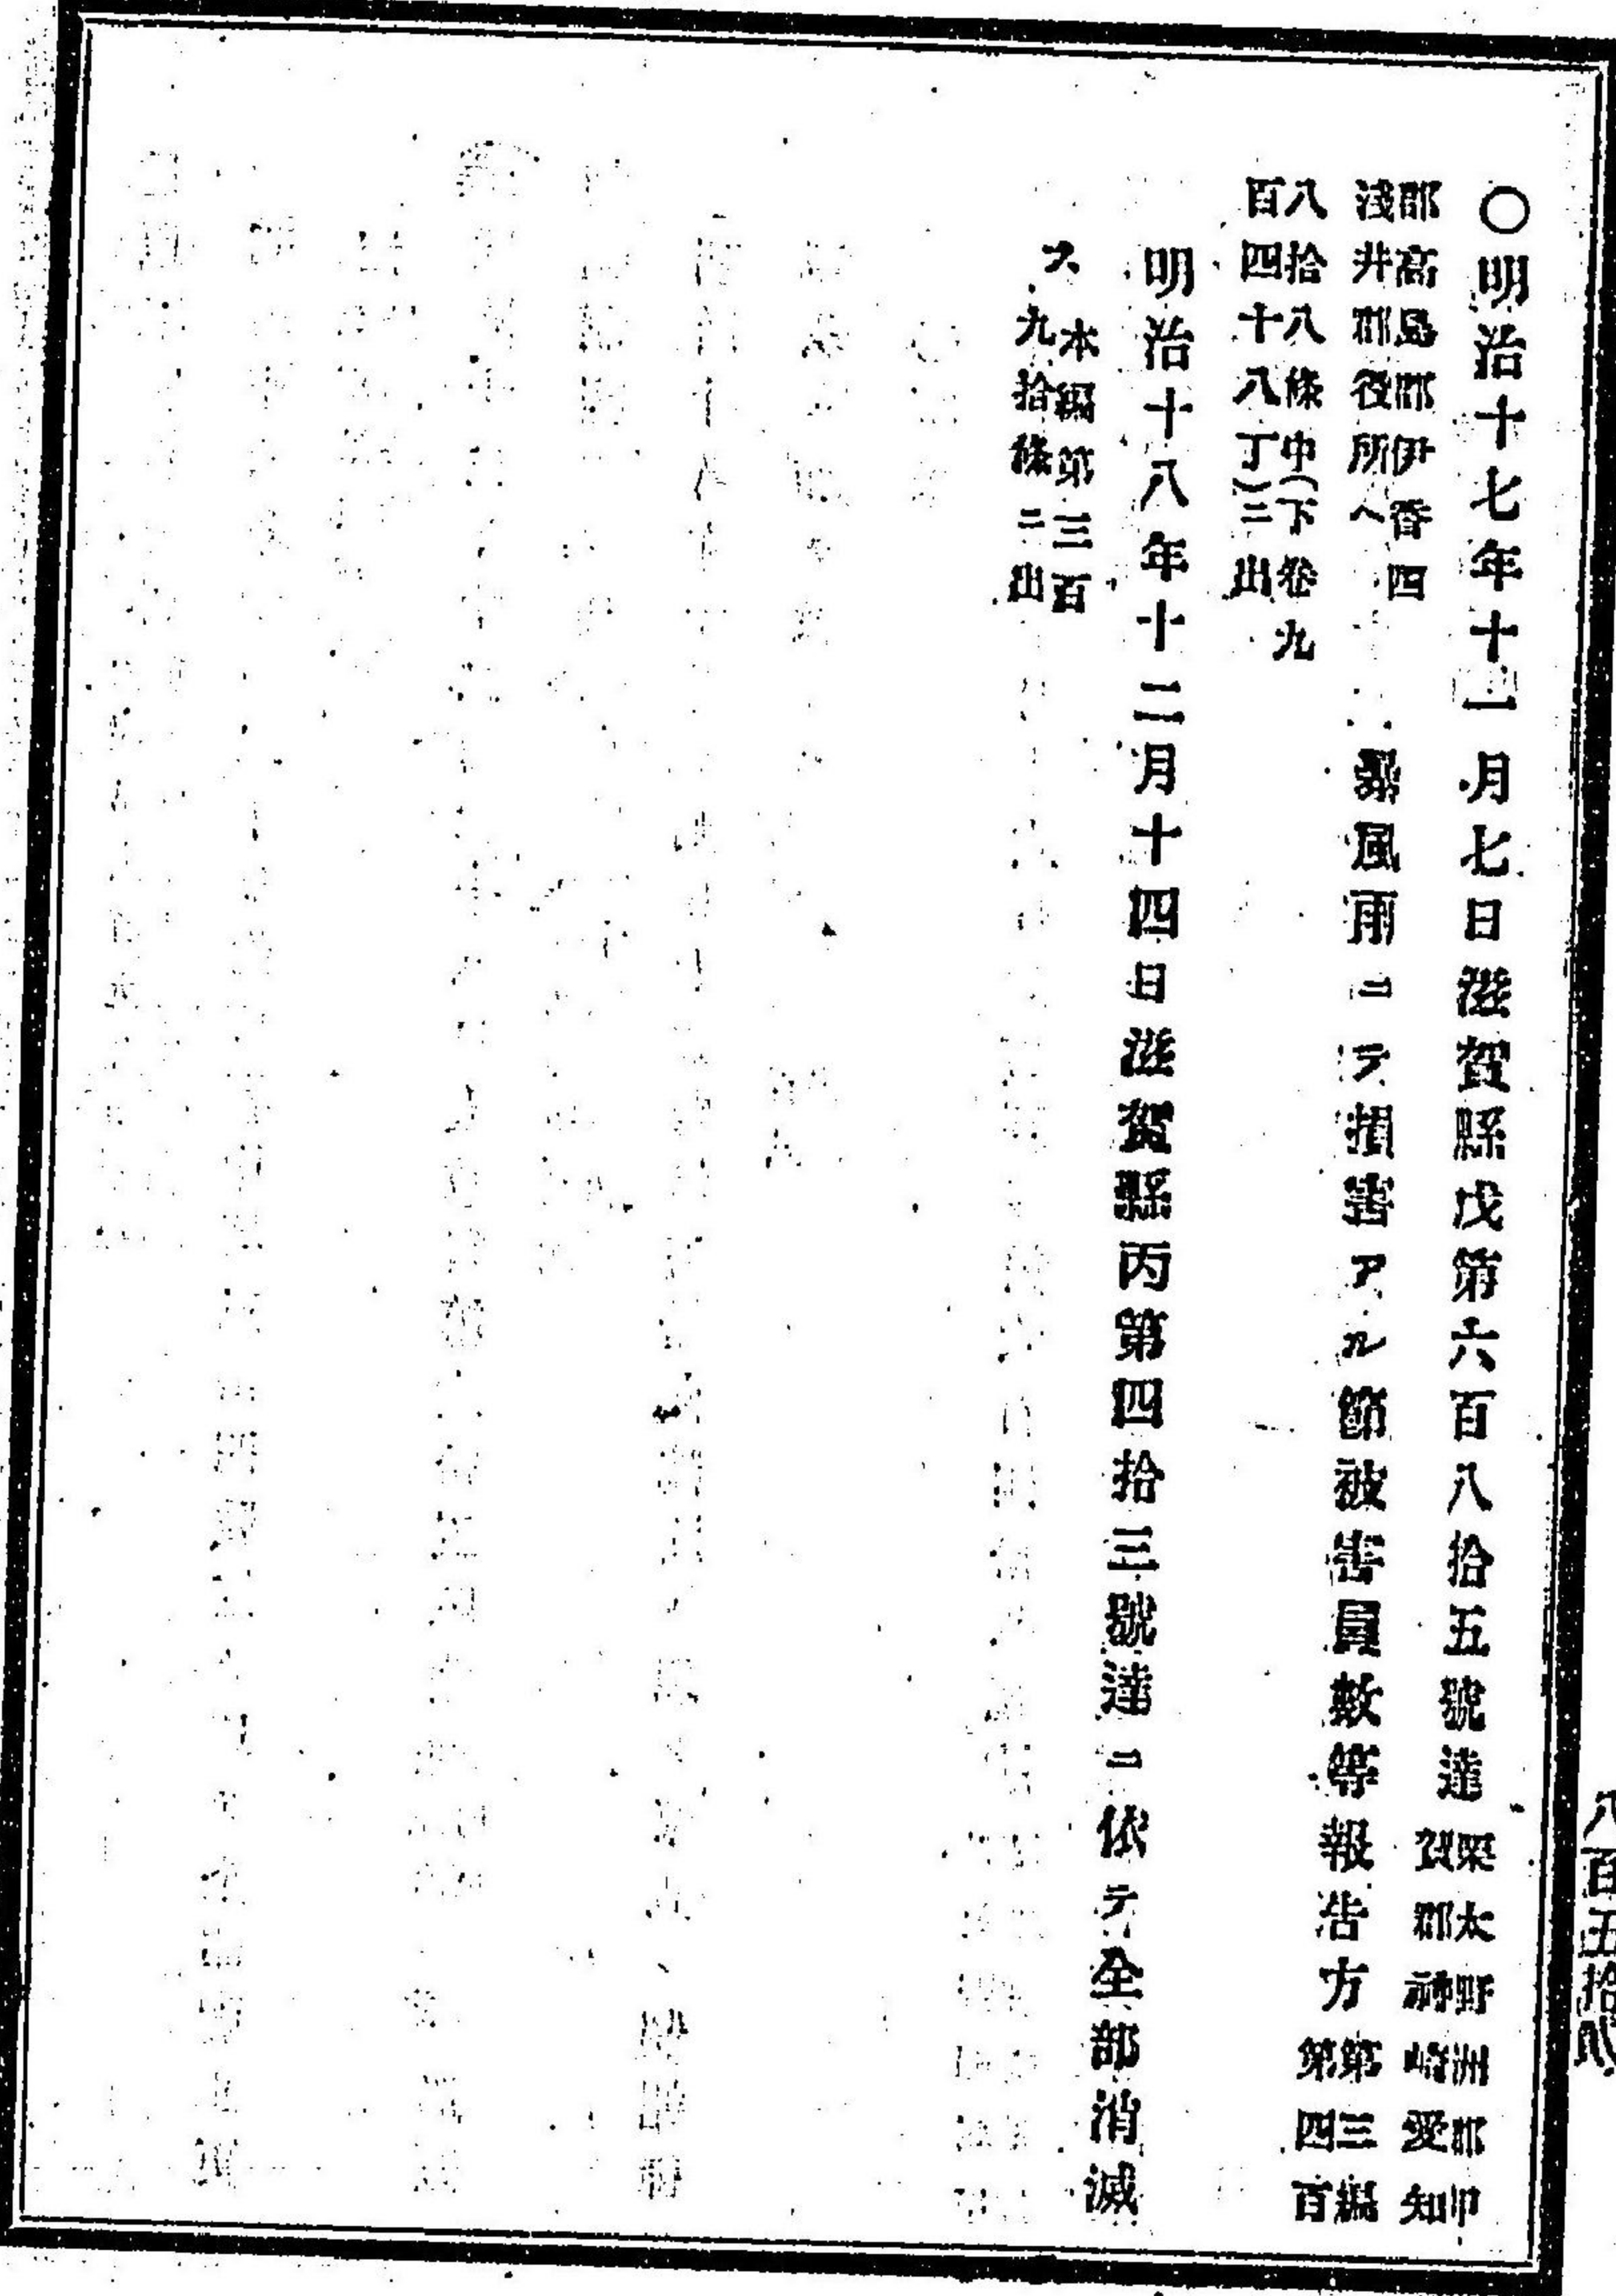 〇明治十七年十一月七日滋賀縣戊第六百八拾五號達
栗太野洲郡甲
賀郡神崎愛知
郡高島郡伊香西
淺井郡役所へ
暴風雨ニテ損害アル節被害員數等報告方
第三編
第四百
八拾八條中(下卷九
百四十八丁)ニ出
明治十八年十二月十四日滋賀縣丙第四拾三號達ニ依テ全部消滅
ス
本編第三百
九拾條ニ出
八百五拾八